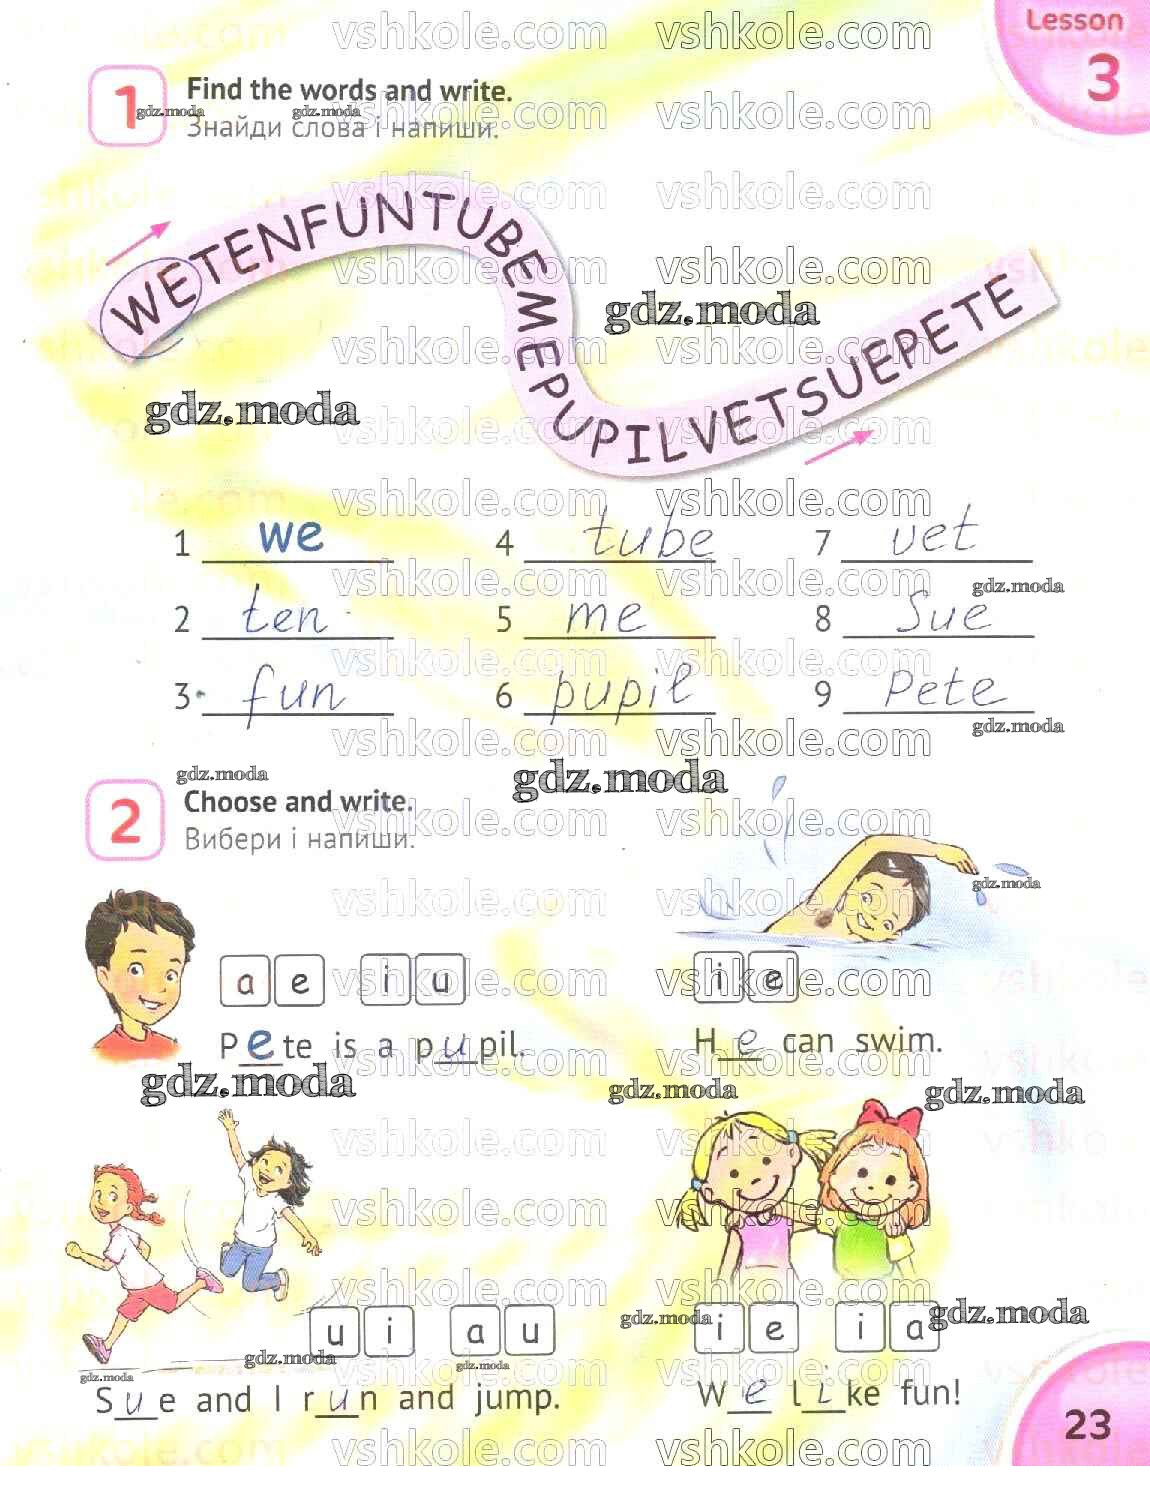 Lesson
3
1 Find the words and write.
Знайди слова і напиши.
WETENFUNTUBEMEPUPILVETSUEPETE
1 we 4 tube 7 vet
2 ten 5 me 8 Sue
3 fun 6 pupil 9 Pete
2 Choose and write.
Вибери і напиши.
a e i u
Pete is a pupil.
i e
He can swim.
u i a u
Sue and I run and jump.
i e i a
We like fun!
23
vshkole.com
gdz.moda